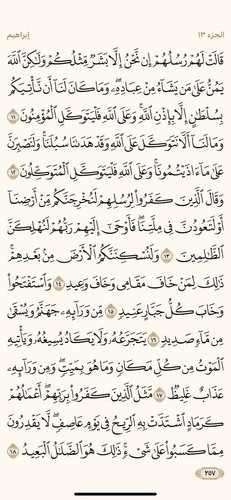 الجزء ١٣
إبراهيم
قَالَتْ لَهُمْ رُسُلُهُمْ إِن نَّحْنُ إِلَّا بَشَرٌ مِّثْلُكُمْ وَلَٰكِنَّ ٱللَّهَ
يَمُنُّ عَلَىٰ مَن يَشَآءُ مِنْ عِبَادِهِۦ ۖ وَمَا كَانَ لَنَآ أَن نَّأْتِيَكُم
بِسُلْطَٰنٍ إِلَّا بِإِذْنِ ٱللَّهِ ۚ وَعَلَى ٱللَّهِ فَلْيَتَوَكَّلِ ٱلْمُؤْمِنُونَ ١١
وَمَا لَنَآ أَلَّا نَتَوَكَّلَ عَلَى ٱللَّهِ وَقَدْ هَدَىٰنَا سُبُلَنَا ۚ وَلَنَصْبِرَنَّ
عَلَىٰ مَآ ءَاذَيْتُمُونَا ۚ وَعَلَى ٱللَّهِ فَلْيَتَوَكَّلِ ٱلْمُتَوَكِّلُونَ ١٢
وَقَالَ ٱلَّذِينَ كَفَرُوا۟ لِرُسُلِهِمْ لَنُخْرِجَنَّكُم مِّنْ أَرْضِنَآ
أَوْ لَتَعُودُنَّ فِى مِلَّتِنَا ۖ فَأَوْحَىٰٓ إِلَيْهِمْ رَبُّهُمْ لَنُهْلِكَنَّ
ٱلظَّٰلِمِينَ ١٣ وَلَنُسْكِنَنَّكُمُ ٱلْأَرْضَ مِنۢ بَعْدِهِمْ ۚ
ذَٰلِكَ لِمَنْ خَافَ مَقَامِى وَخَافَ وَعِيدِ ١٤ وَٱسْتَفْتَحُوا۟
وَخَابَ كُلُّ جَبَّارٍ عَنِيدٍ ١٥ مِّن وَرَآئِهِۦ جَهَنَّمُ وَيُسْقَىٰ
مِن مَّآءٍ صَدِيدٍ ١٦ يَتَجَرَّعُهُۥ وَلَا يَكَادُ يُسِيغُهُۥ وَيَأْتِيهِ
ٱلْمَوْتُ مِن كُلِّ مَكَانٍ وَمَا هُوَ بِمَيِّتٍ ۖ وَمِن وَرَآئِهِۦ
عَذَابٌ غَلِيظٌ ١٧ مَّثَلُ ٱلَّذِينَ كَفَرُوا۟ بِرَبِّهِمْ ۖ أَعْمَٰلُهُمْ
كَرَمَادٍ ٱشْتَدَّتْ بِهِ ٱلرِّيحُ فِى يَوْمٍ عَاصِفٍ ۖ لَّا يَقْدِرُونَ
مِمَّا كَسَبُوا۟ عَلَىٰ شَىْءٍ ۚ ذَٰلِكَ هُوَ ٱلضَّلَٰلُ ٱلْبَعِيدُ ١٨
٢٥٧